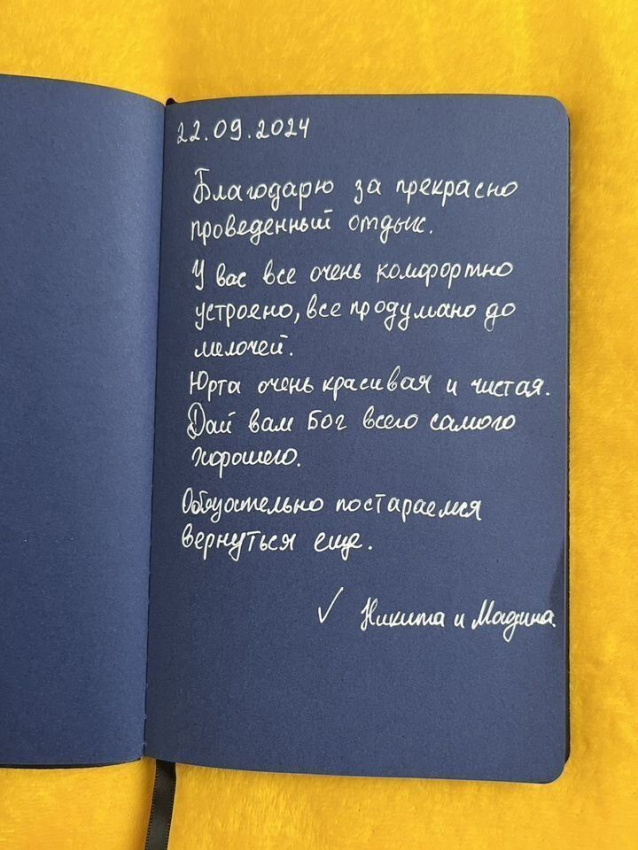 22.09.2024
Благодарю за прекрасно
проведенный отдых.
У вас все очень комфортно
устроено, все продумано до
мелочей.
Юрта очень красивая и чистая.
Дай вам Бог всего самого
хорошего.
Обязательно постараемся
вернуться еще.
✓ Никита и Мадина.